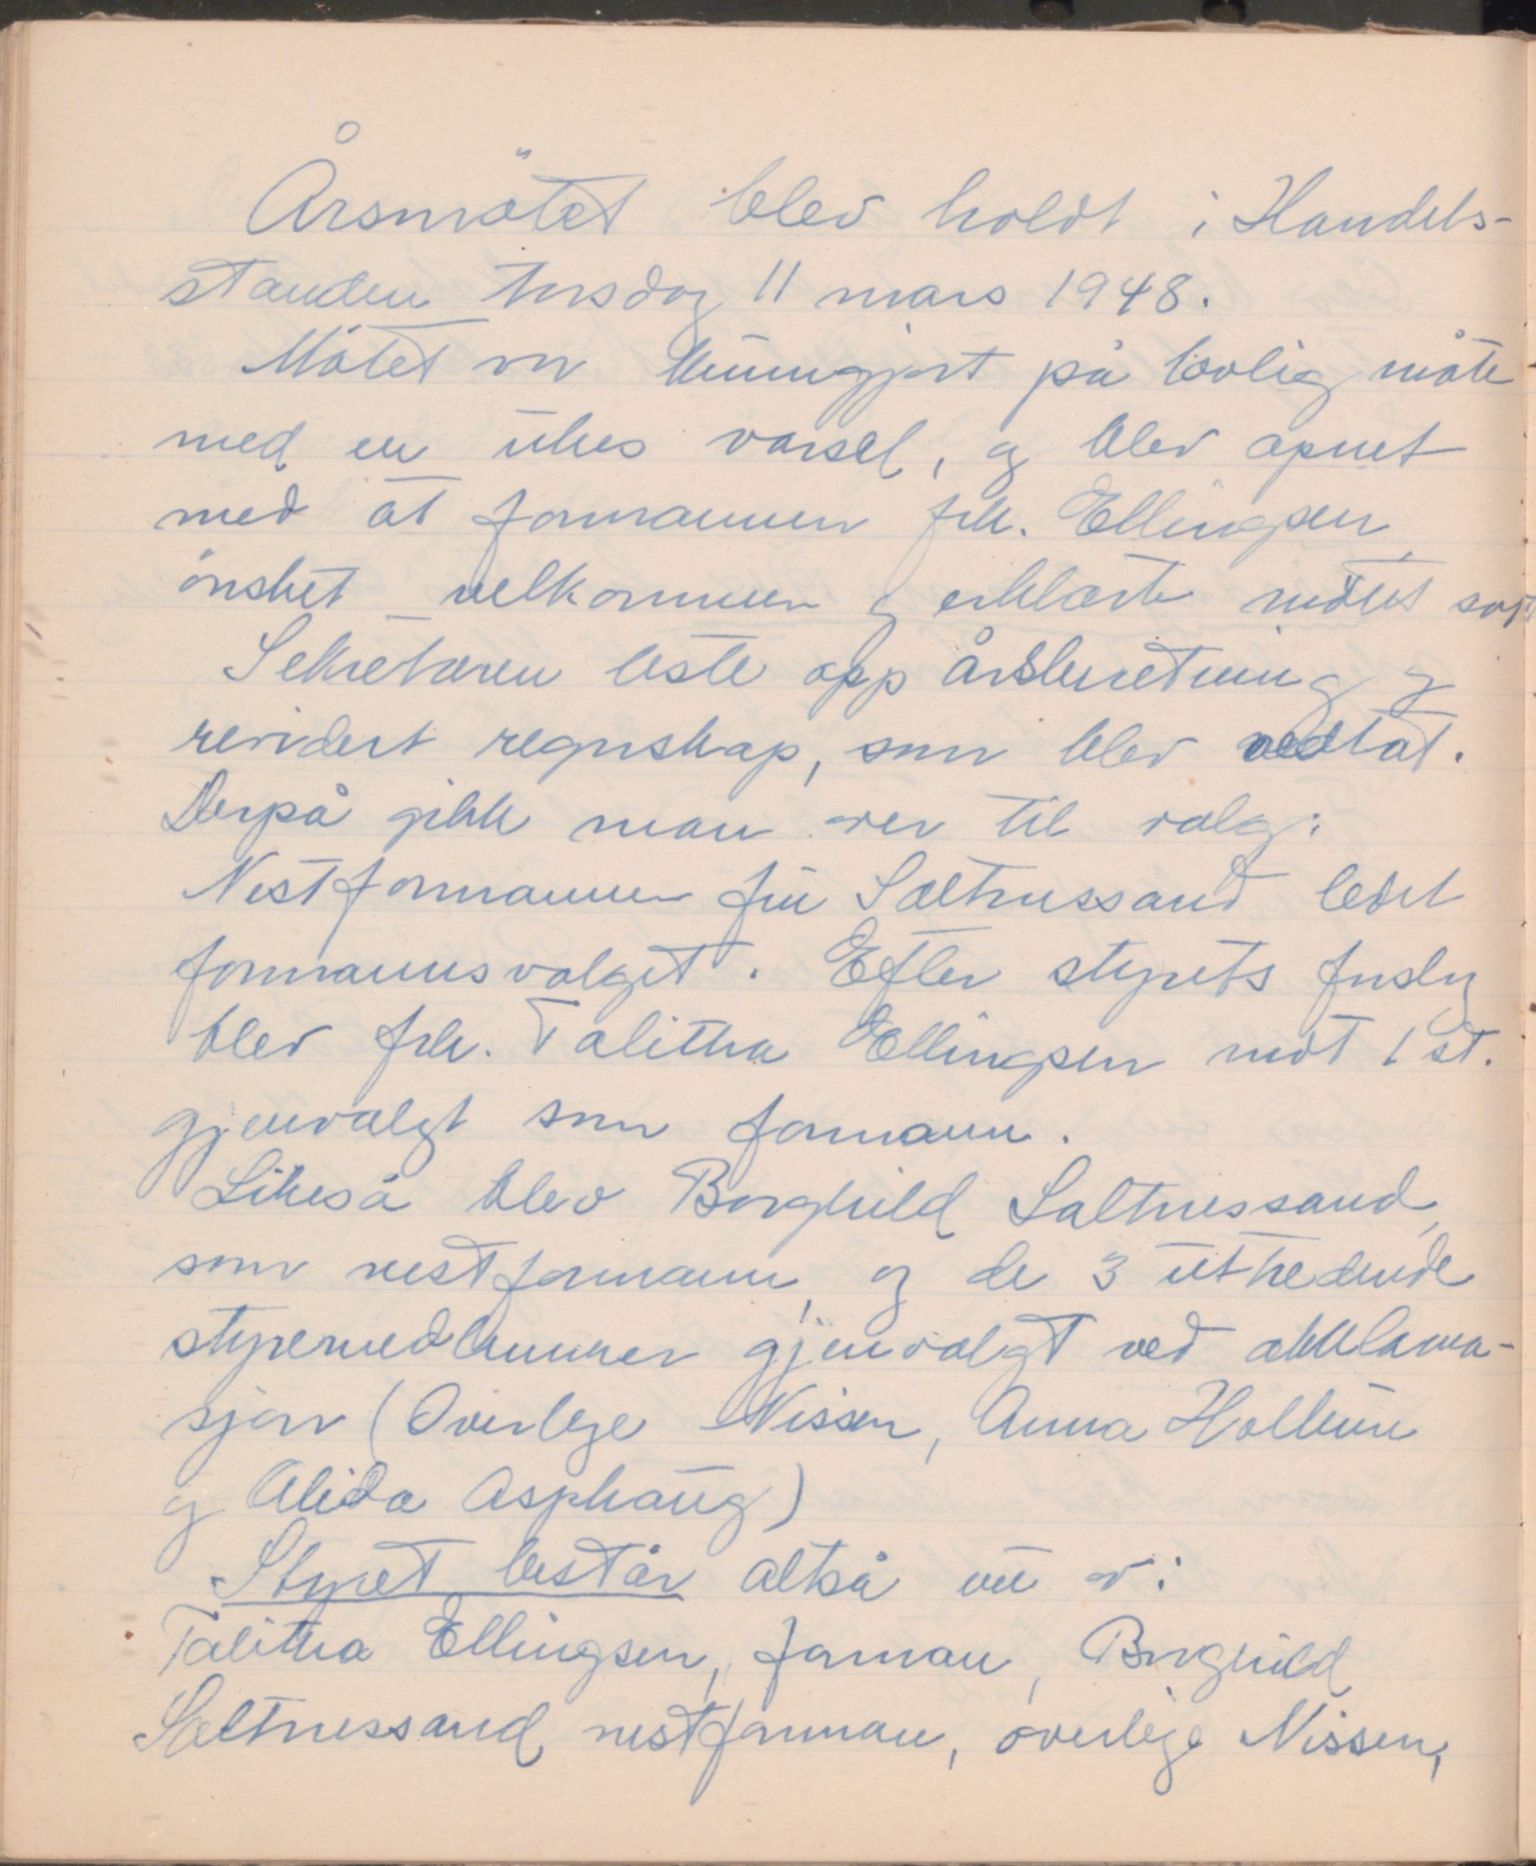 Årsmötet blev holdt i Handels-
standen torsdag 11 mars 1948.
Mötet var kunngjort på lovlig måte
med en ukes varsel, og blev åpnet
med at formannen frk. Ellingsen
önsket velkommen og erklærte mötet satt
Sekretæren leste opp årsberetning og
revidert regnskap, som blev vedtat.
Derpå gikk man over til valg:
Nestformannen fru Saltnessand ledet
formannsvalget. Efter styrets forslag
blev frk. Talitha Ellingsen mot 1 st.
gjenvalgt som formann.
Likeså blev Borghild Saltnessand,
som nestformann, og de 3 uttredende
styremedlemmer gjenvalgt ved akklama-
sjon (Overlege Nissen, Anna
og Alida Asphaug)
Styret består altså nu av:
Talitha Ellingsen, forman, Borghild
Saltnessand nestforman, overlege Nissen,